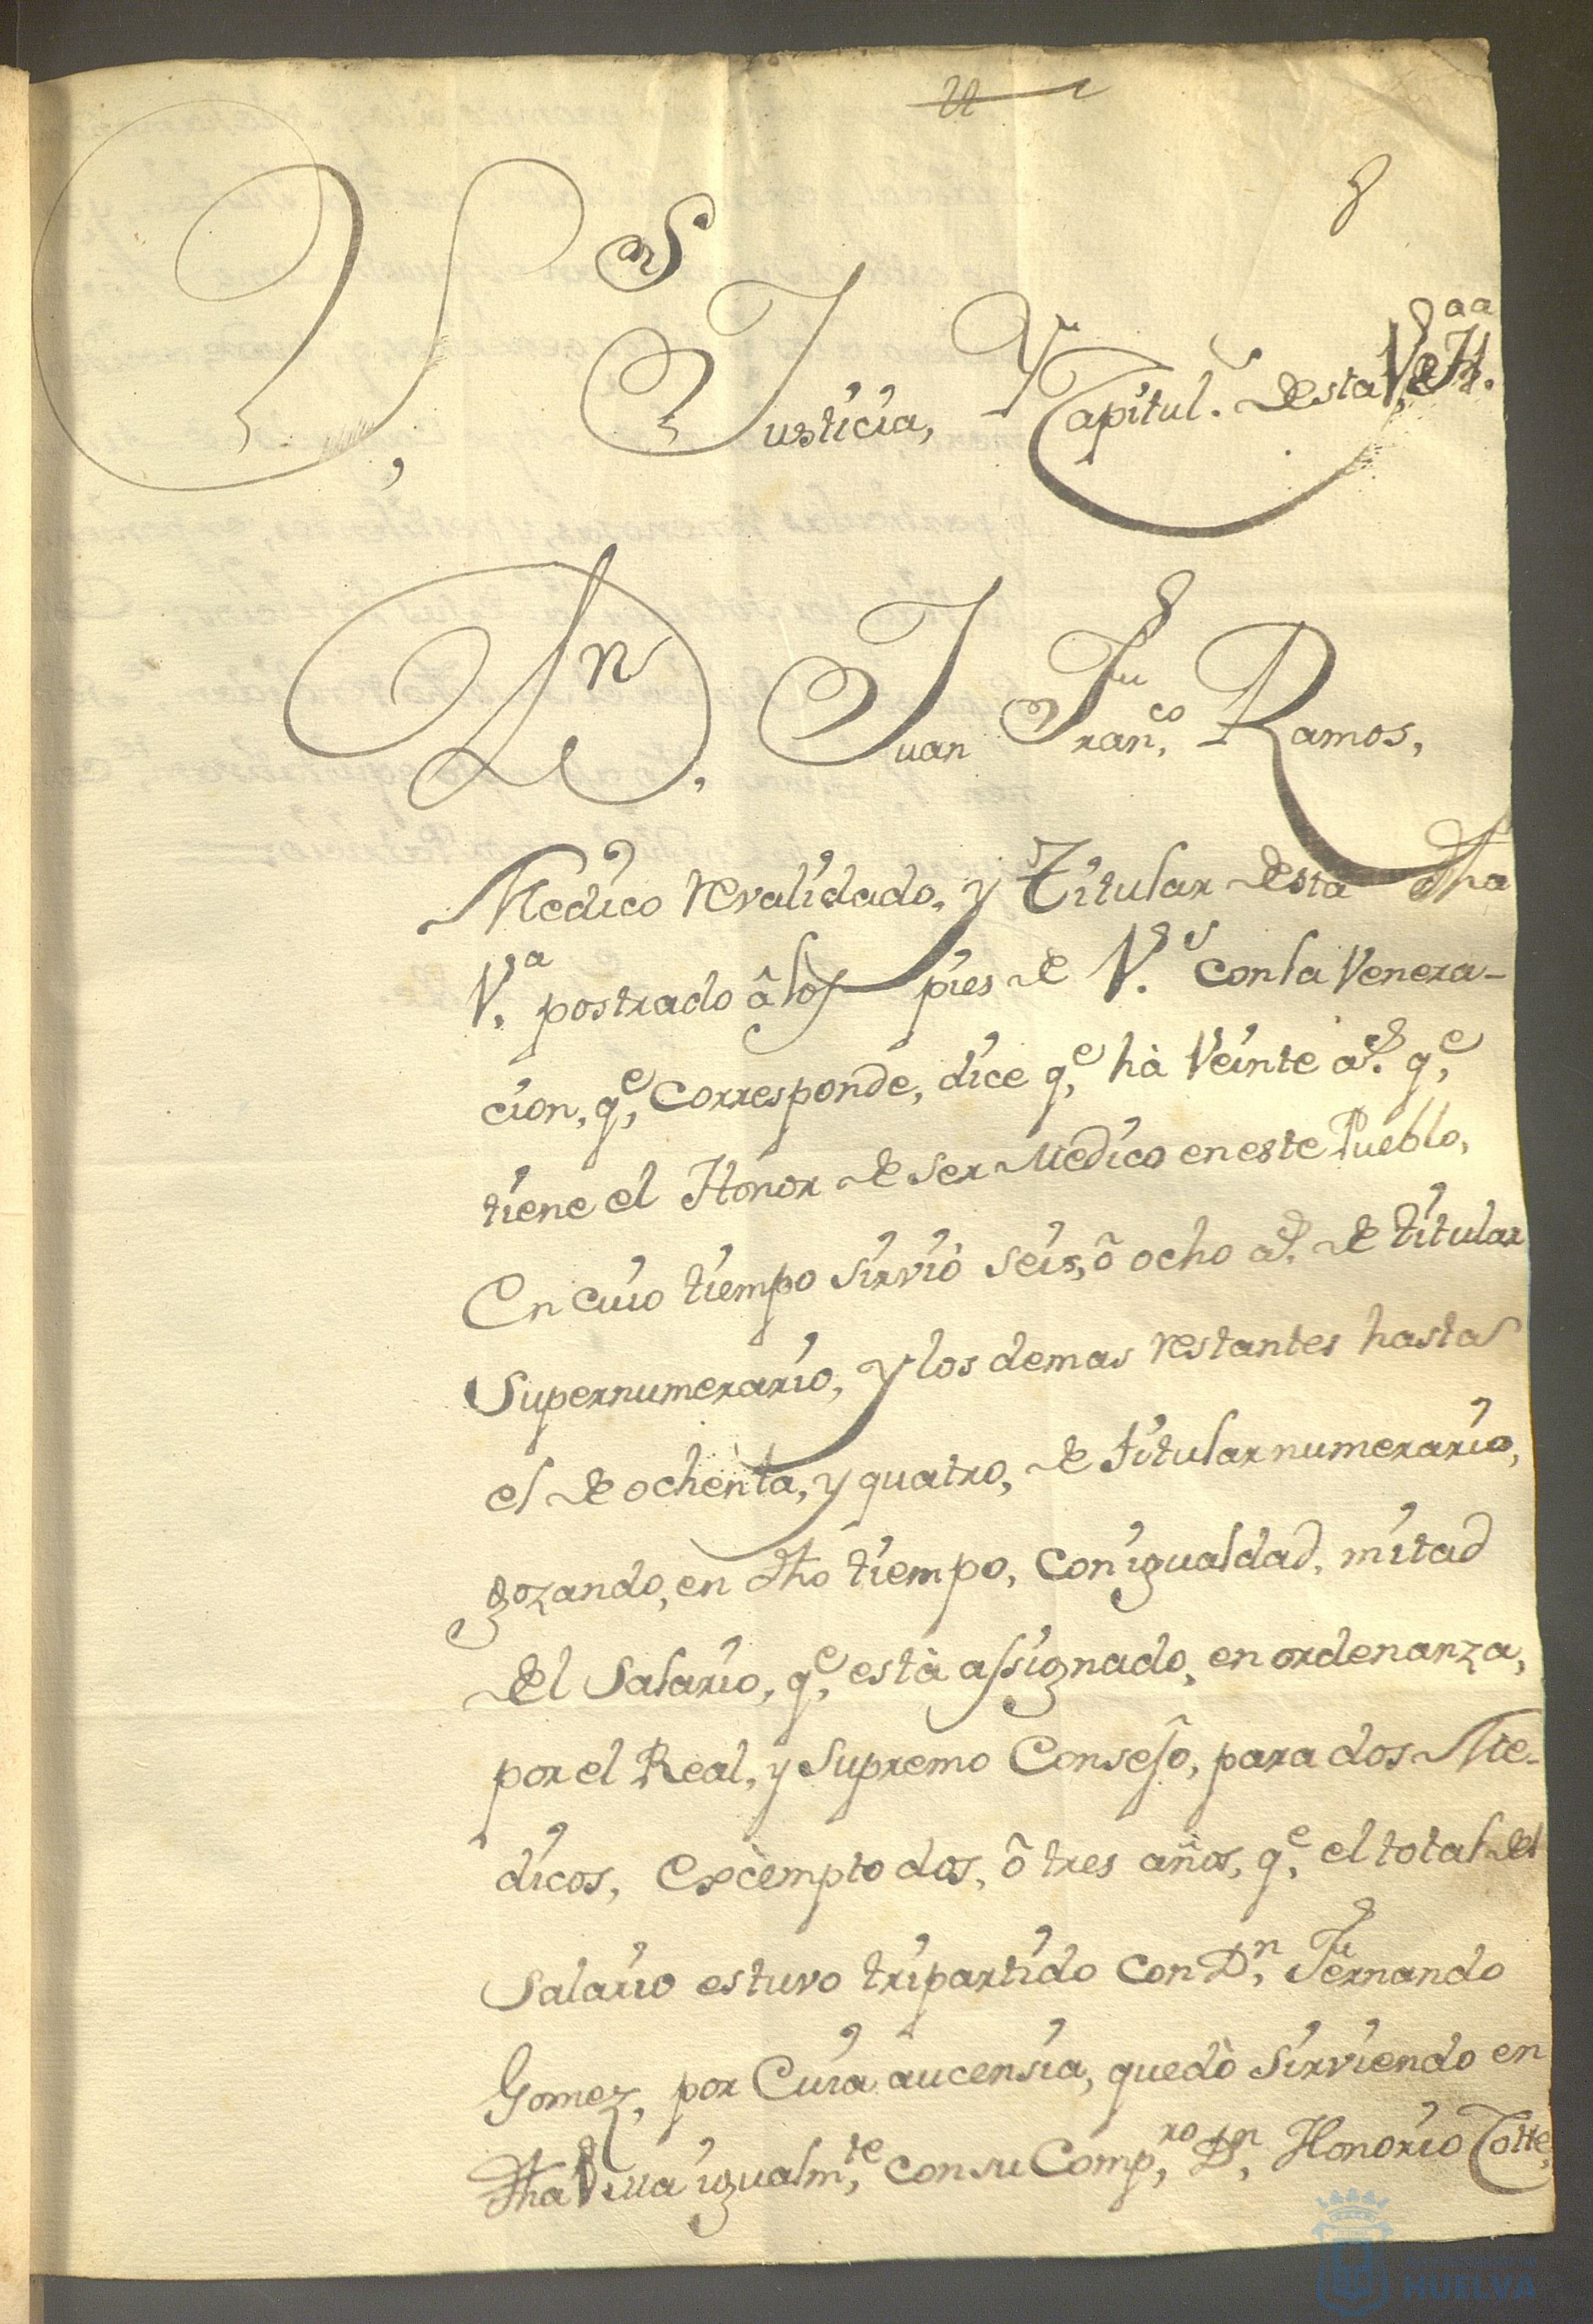 22
8
SS.res
Justicia, Y Capitul.s desta V.a de H.a
D.n Juan Fran.co Ramos,
Medico revalidado, y Titular desta dha
V.a postrado â los pies de V.s con la Venera-
cion, q.e corresponde, dice q.e hà Veinte a.s q.e
tiene el Honor de ser Medico en este Pueblo,
En cuio tiempo sirviò seis, ô ocho a.s de titular
Supernumerario, y los demas restantes hasta
el de ochenta, y quatro, de titular numerario,
gozando, en dho tiempo, con igualdad, mitad
del Salario, q.e està assignado, en ordenanza,
por el Real, y Supremo Consejô, para dos Me-
dicos, excèmpto dos, ô tres años, q.e el total del
Salario estuvo tripartido con D.n Fernando
Gomez, por Cuia aucensia, quedò sirviendo en
dha Villa igualm.te con su Comp.ro D.n Honorio Cotte,
HUELVA